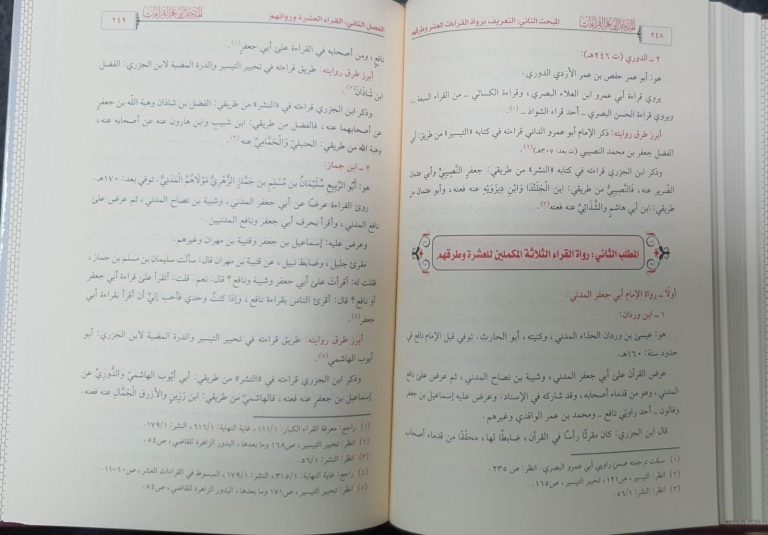 ٢٤٨
المبحث الثاني: التعريف برواة القراءات العشر وطرقهم
٢ ـ الدوري (ت ٢٤٦هـ):
هو: أبو عمر حفص بن عمر الأزدي الدوري.
يروي قراءة أبي عمرو ابن العلاء البصري، وقراءة الكسائي ـ من القراء السبعة ـ
ويروي قراءة الحسن البصري ـ أحد قراء الشواذ ـ (١).
أبرز طرق روايته: ذكر الإمام أبو عمرو الداني قراءته في كتابه «التيسير» من طريق: أبي
الفضل جعفر بن محمد النصيبي (ت بعد: ٣٠٧هـ)(٢).
وذكر ابن الجزري قراءته في كتابه «النشر» من طريقي: جعفر النَّصِيبِيُّ وأبي عثمان
الضرير عنه، فالنَّصِيبِيُّ من طريقي: ابن الْجُلَنْدَا وَابْنِ دِيزَوَيْهِ عنه فعنه، وأبو عثمان من
طريقي: ابن أبي هاشم والشَّذَائِيِّ عنه فعنه(٣).
المطلب الثاني: رواة القراء الثلاثة المكملين للعشرة وطرقهم
أولًا ـ رواة الإمام أبي جعفر المدني:
١ ـ ابن وردان:
هو: عيسى بن وردان الحذاء المدني، وكنيته: أبو الحارث. توفي قبل الإمام نافع في
حدود سنة: ١٦٠هـ.
عرض القرآن على أبي جعفر المدني، وشيبة بن نصاح المدني، ثم عرض على نافع
المدني، وهو من قدماء أصحابه، وقد شاركه في الإسناد. وعرض عليه إسماعيل بن جعفر
وقالون ـ أحد راويَي نافع ـ ومحمد بن عمر الواقدي وغيرهم.
قال ابن الجزري: كان مقرئًا رأسًا في القرآن، ضابطًا لها، محققًا من قدماء أصحاب
(١) سبقت ترجمته ضمن راويي أبي عمرو البصري. انظر: ص ٢٣٥.
(٢) انظر: التيسير، ص١٢١، تحبير التيسير، ص١٦٥.
(٣) انظر: النشر: ٥٦/١.
الفصل الثاني: القراء العشرة ورواتهم
٢٤٩
نافع، ومن أصحابه في القراءة على أبي جعفر(١).
أبرز طرق روايته: طريق قراءته في تحبير التيسير والدرة المضية لابن الجزري: الفضل
ابن شَاذَانَ(٢).
وذكر ابن الجزري قراءته في «النشر» من طريقي: الفضل بن شاذان وهبة الله بن جعفر
عن أصحابهما عنه، فالفضل من طريقي: ابن شبيب وابن هارون عنه عن أصحابه عنه،
وهبة الله من طريقي: الحنبليّ وَالْحَمَّامِيِّ عنه(٣).
٢ ـ ابن جماز:
هو: أَبُو الرَّبِيعِ سُلَيْمَانُ بن مُسْلِمِ بن جَمَّازٍ الزُّهْرِيُّ مَوْلَاهُمُ الْمَدَنِيُّ. توفي بعد: ١٧٠هـ.
روى القراءة عرضًا عن أبي جعفر المدني، وشيبة بن نصاح المدني، ثم عرض على
نافع المدني، وأقرأ بحرف أبي جعفر ونافع المدنيين.
وعرض عليه: إسماعيل بن جعفر وقتيبة بن مهران وغيرهم.
مقرئ جليل، وضابط نبيل، عن قتيبة بن مهران قال: سألت سليمان بن مسلم بن جماز،
فقلت له: أقرأتَ على أبي جعفر وشيبة ونافع؟ قال: نعم. قلت: أتقرأ على قراءة أبي جعفر
أو نافع؟ قال: أقرئ الناس بقراءة نافع، وإذا كنتُ وحدي فأحب إليَّ أن أقرأ بقراءة أبي
جعفر(٤).
أبرز طرق روايته: طريق قراءته في تحبير التيسير والدرة المضية لابن الجزري: أبو
أيوب الهاشمي(٥).
وذكر ابن الجزري قراءته في «النشر» من طريقي: أبي أيُّوب الهاشميّ والدُّوريِّ عن
إسماعيل بن جعفرٍ عنه فعنه، فالهاشميّ من طريقي: ابن رَزِينٍ وَالأزرق الْجَمَّالِ عنه فعنه.
(١) راجع: معرفة القراء الكبار: ١١١/١، غاية النهاية: ٦١٦/١، النشر: ١٧٩/١.
(٢) انظر: تحبير التيسير، ص١٦٨ وما بعدها، البدور الزاهرة للقاضي، ص٥٤.
(٣) انظر: النشر: ٥٦/١.
(٤) راجع: غاية النهاية: ٣١٥/١، النشر: ١٧٩/١، المبسوط في القراءات العشر، ص١٠-١١.
(٥) انظر: تحبير التيسير، ص١٧١ وما بعدها، البدور الزاهرة للقاضي، ص٥٤.